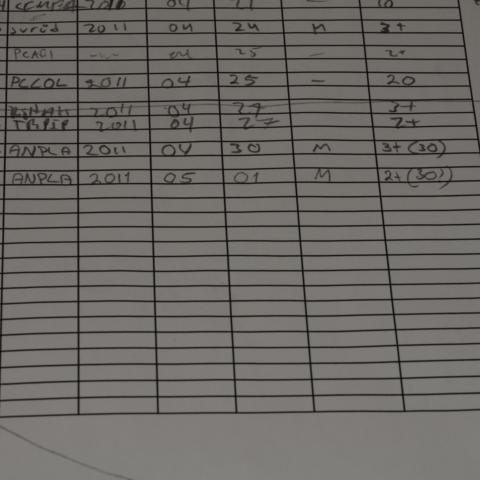 2011 04 24 M 3+
04 25 — 2+
PCCOL 2011 04 25 — 20
2011 04 27 3+
2011 04 27 2+
ANPLA 2011 04 30 M 3+ (30)
ANPLA 2011 05 01 M 2+ (30)